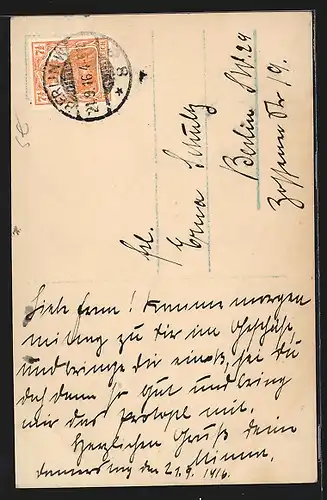 BERLIN W
21.9.16.4-5
* 8
7½
7½
5€
Frl.
Erna Schulz
Berlin SW. 29
Zossener Str. 19.
Liebe Erna! Komme morgen
mittag zu Dir im Geschäft,
und bringe Dir etwas, sei Du
doch dann so gut und bring
mir das mit.
Herzlichen Gruß Deine
Donnerstag den 21.9.1916.